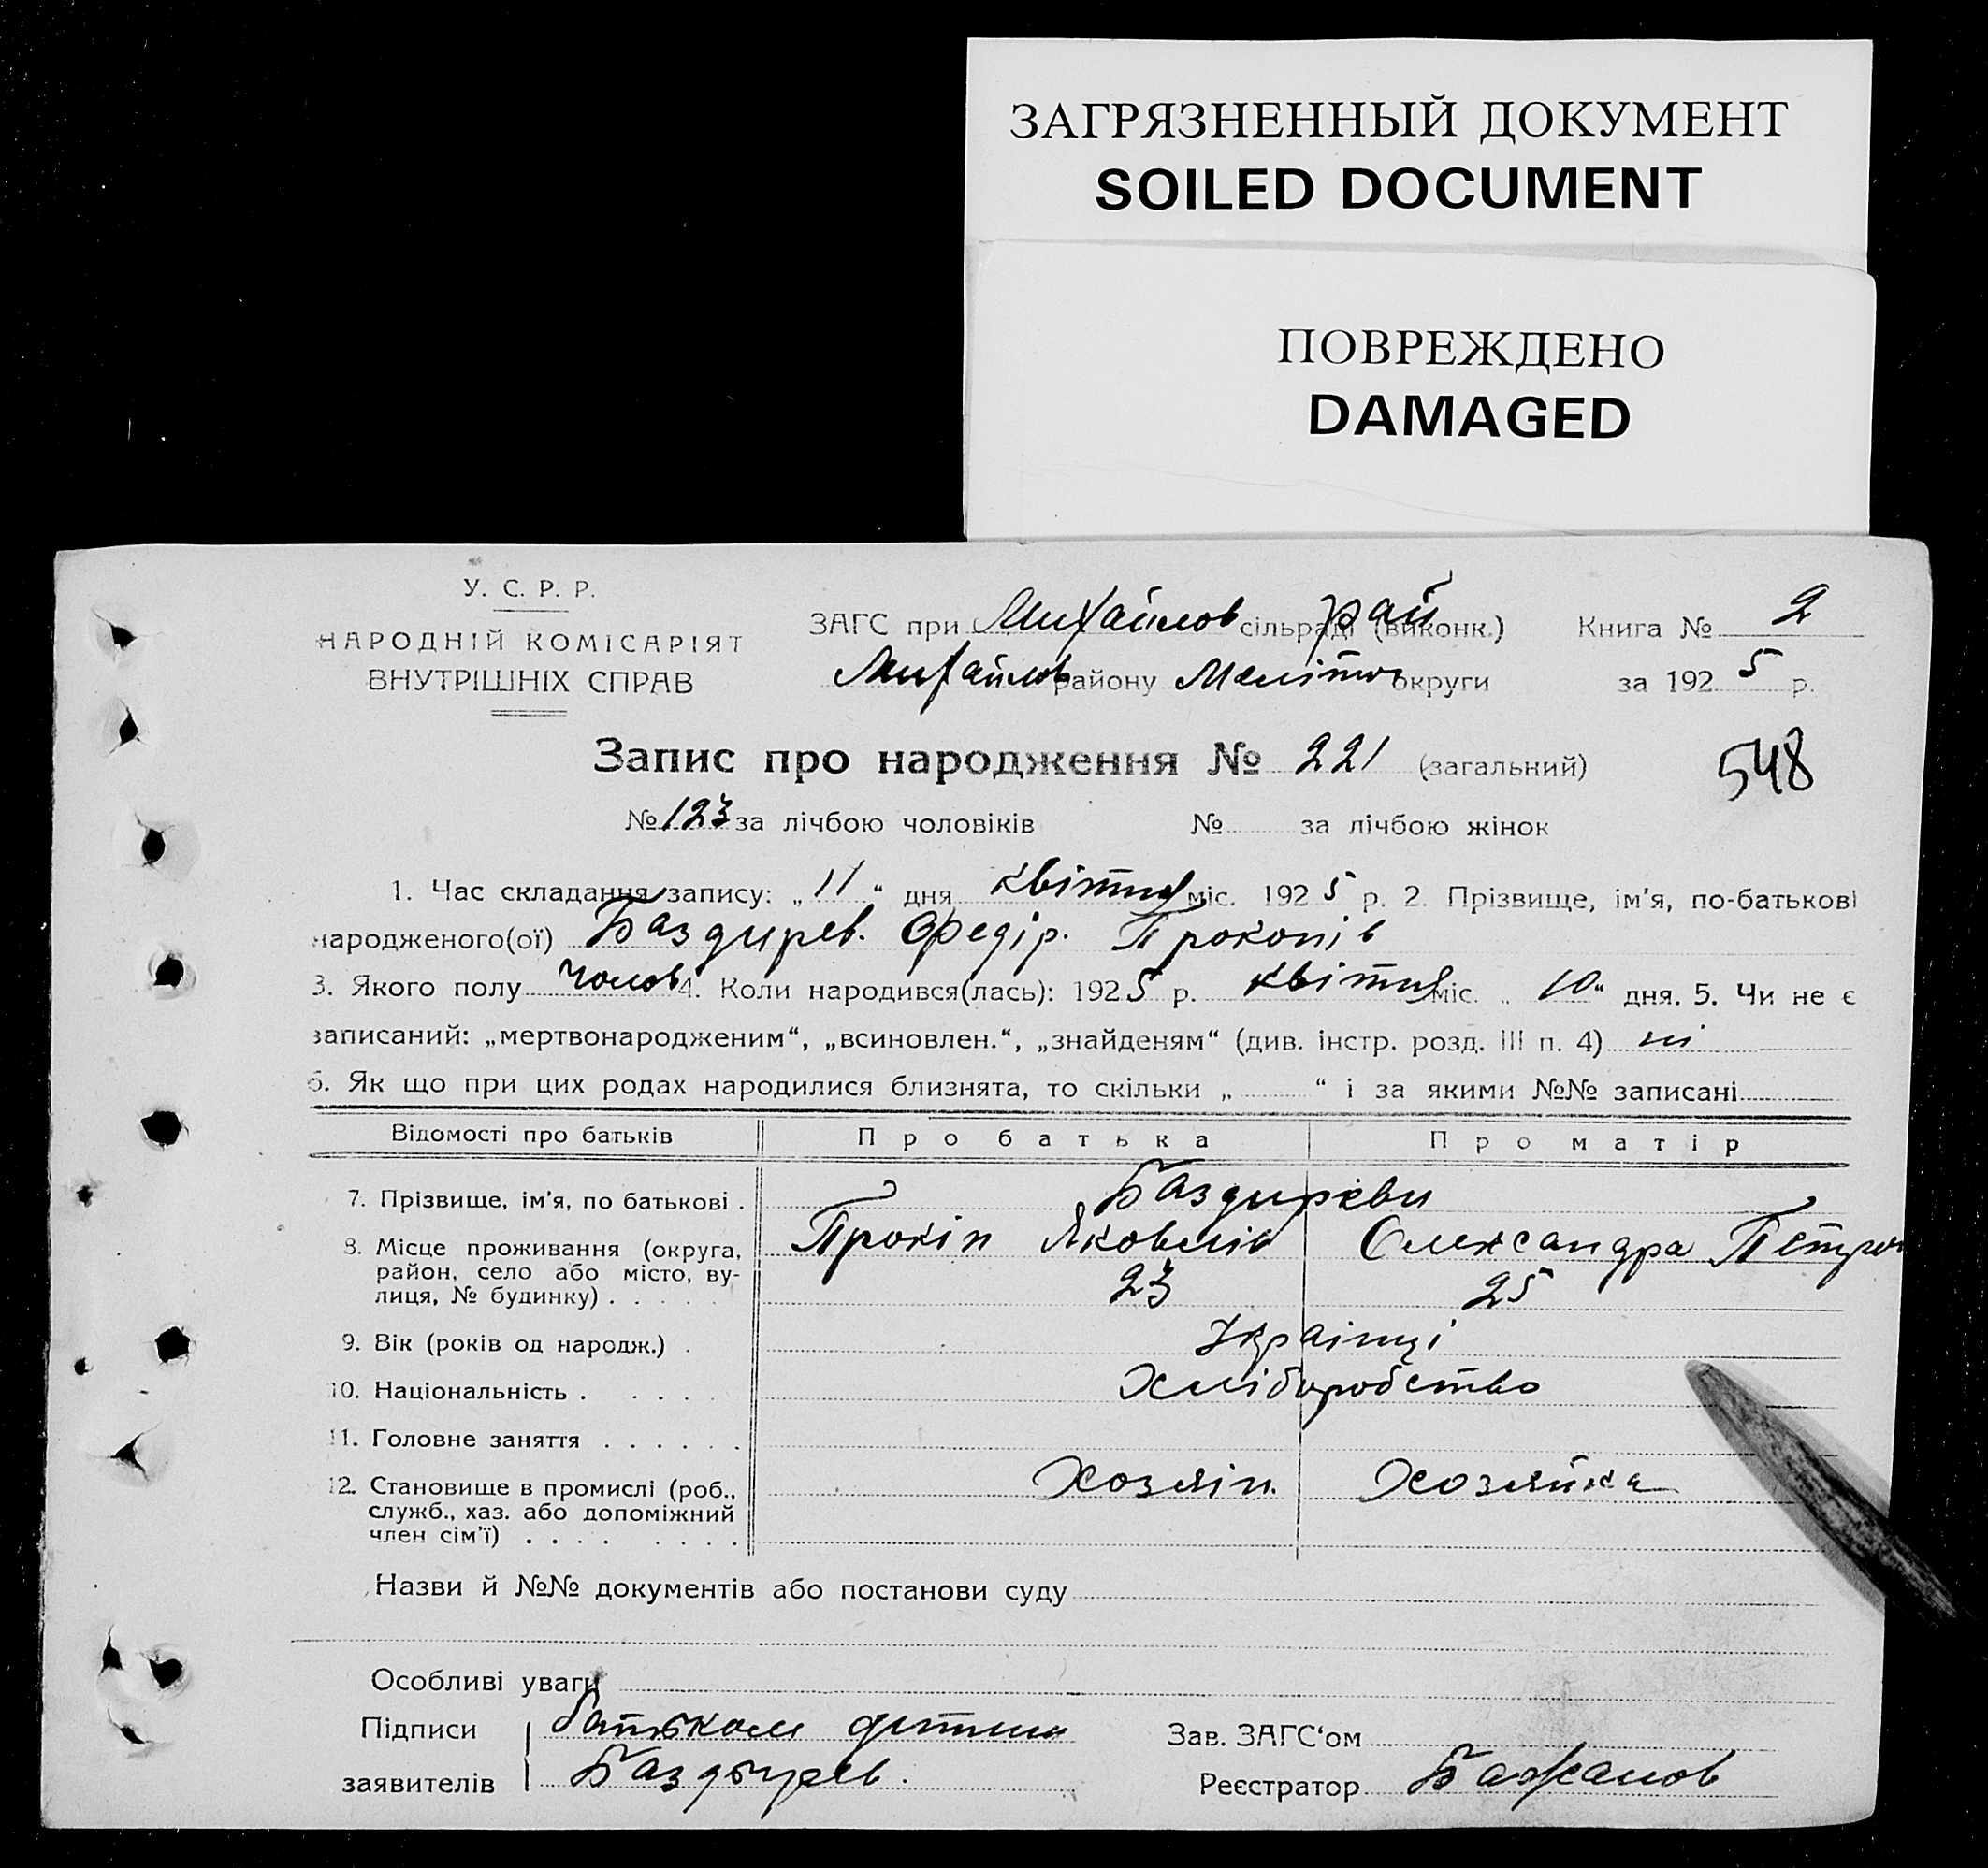 ЗАГРЯЗНЕННЫЙ ДОКУМЕНТ
SOILED DOCUMENT
ПОВРЕЖДЕНО
DAMAGED
У. С. Р. Р.
НАРОДНІЙ КОМІСАРІЯТ
ВНУТРІШНІХ СПРАВ
ЗАГС при Михайлов сільраді (виконк.) рай
Михайлов району Меліто округи
Книга № 2
за 1925 р.
Запис про народження № 221 (загальний)
548
№ 123 за лічбою чоловіків № за лічбою жінок
1. Час складання запису: „11“ дня квітня міс. 1925 р. 2. Прізвище, ім'я, по-батькові
народженого(ої) Баздирев. Федір. Прокопів
3. Якого полу чолов 4. Коли народився(лась): 1925 р. квітня міс. „10“ дня. 5. Чи не є
записаний: „мертвонародженим“, „всиновлен.“, „знайденям“ (див. інстр. розд. III п. 4) ні
6. Як що при цих родах народилися близнята, то скільки „ “ і за якими №№ записані
Відомості про батьків Про батька Про матір
7. Прізвище, ім'я, по батькові . Баздиреви
8. Місце проживання (округа, Прокіп Яковлів Олександра Петров
район, село або місто, ву-
лиця, № будинку) . . . . . 23 25
9. Вік (років од народж.) . Українці
10. Національність . . . . . Хліборобство
11. Головне заняття . . . . . .
12. Становище в промислі (роб., Хозяін. Хозяйка
служб., хаз. або допоміжний
член сім'ї) . . . . . . . .
Назви й №№ документів або постанови суду
Особливі уваги
Підписи батьком дитини
заявителів Баздырев.
Зав. ЗАГС‘ом
Реєстратор Бажанов